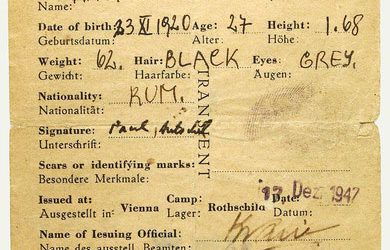 Name:
Date of birth: 23 XI 1920 Age: 27 Height: 1.68
Geburtsdatum: Alter: Höhe:
Weight: 62. Hair: BLACK Eyes: GREY.
Gewicht: Haarfarbe: Augen:
TRANSIENT
Nationality: RUM.
Nationalität:
Signature: Paul,
Unterschrift:
Scars or identifying marks:
Besondere Merkmale:
Issued at: Camp: Date:
Ausgestellt in Vienna Lager: Rothschild Datum: 17. Dez. 1947
Name of Iesuing Official:
Name des ausstell. Beamten: